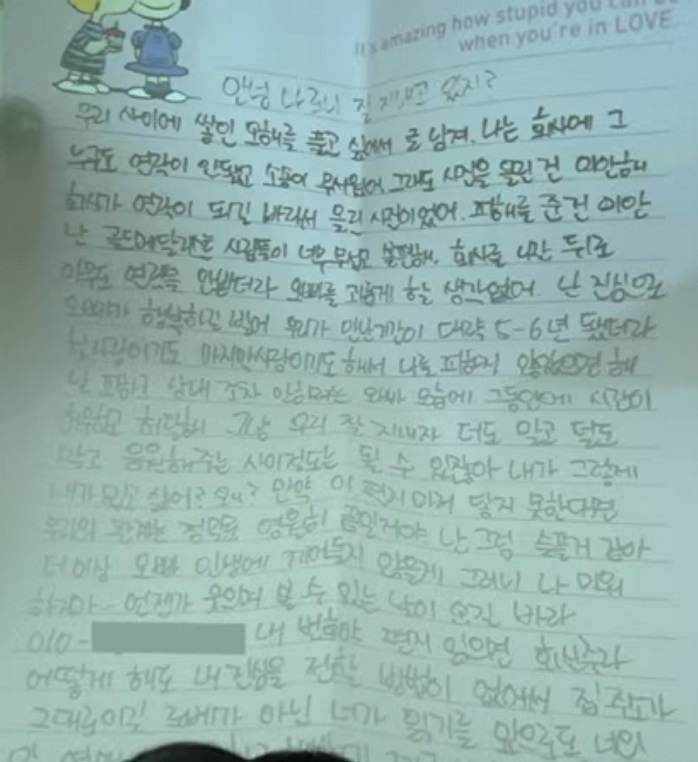 It's amazing how stupid you can be
when you're in LOVE.
안녕 나 잘 지내고 있지?
우리 사이에 쌓인 오해를 풀고 싶어서 글 남겨. 나는 회사에 그
누구도 연락이 안됐고 소송이 무서웠어. 그래도 시점을 올린 건 미안해
회사가 연락이 되길 바라서 올린 사진이었어. 피해를 준건 미안
난 골드메달리스트 사람들이 너무 무섭고 불편해. 회사를 나간 뒤로
아무도 연락을 안받더라 오빠를 괴롭게 할 생각없어. 난 진심으로
오빠가 행복하길 빌어 우리가 만난기간이 대략 5-6년 됐더라
첫사랑이기도 마지막사랑이기도해서 나를 피하지 않았으면 해
난 피하고 상대 조차 안하려는 오빠 모습에 그동안에 시간이
허무하고 허탈해 그냥 우리 잘 지내자 더도 말고 덜도
말고 응원해주는 사이정도는 될 수 있잖아 내가 그렇게
내가 밉고 싫어? 왜? 만약 이 편지마저 닿지 못한다면
우리의 관계는 정말로 영원히 끝일거야 난 그럼 슬플거 같아
더이상 오빠 인생에 끼어들지 않을게 그러니 나 미워
하지마 - 언젠가 웃으며 볼 수 있는 날이 오길 바라
010- 내 번호야 편지 읽으면 회신주라
어떻게 해도 내 진심을 전할 방법이 없어서 집주소가
그대로이길 로베가 아닌 너가 읽기를 앞으로도 너의